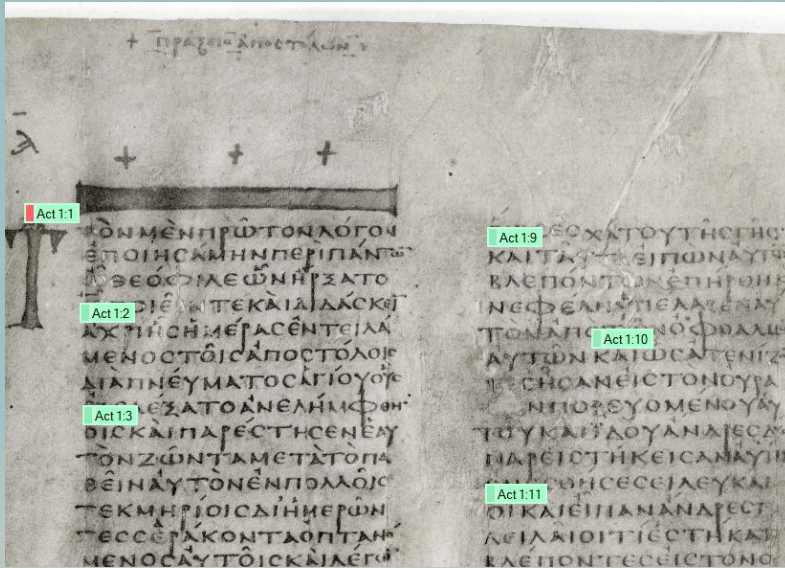 + πραξεις αποστολων
Act 1:1
ΤΟΝΜΕΝΠΡΩΤΟΝΛΟΓΟΝ
ΕΠΟΙΗϹΑΜΗΝΠΕΡΙΠΑΝΤΩ̅
ΘΕΟΦΙΛΕΩΝΗΡΞΑΤΟ
Act 1:2
ΤΕΚΑΙΔΙΔΑϹΚΕΙ̅
ΑΧΡΙΗϹΗΜΕΡΑϹΕΝΤΕΙΛΑ
ΜΕΝΟϹΤΟΙϹΑΠΟϹΤΟΛΟΙϹ
ΔΙΑΠΝΕΥΜΑΤΟϹΑΓΙΟΥΟΥϹ
Act 1:3
ΛΕΞΑΤΟΑΝΕΛΗΜΦΘΗ
ΟΙϹΚΑΙΠΑΡΕϹΤΗϹΕΝΕΑΥ
ΤΟΝΖΩΝΤΑΜΕΤΑΤΟΠΑ
ΘΕΙΝΑΥΤΟΝΕΝΠΟΛΛΟΙϹ
ΤΕΚΜΗΡΙΟΙϹΔΙΗΜΕΡΩΝ
ΤΕϹϹΕΡΑΚΟΝΤΑΟΠΤΑΝΟ
ΜΕΝΟϹΑΥΤΟΙϹΚΑΙΛΕΓΩ̅
Act 1:9
ΧΑΤΟΥΤΗϹΓΗϹ
ΚΑΙΤΑΥΤΑΕΙΠΩΝΑΥΤΩ
ΒΛΕΠΟΝΤΩΝΕΠΗΡΘΗΚ
ΝΕΦΕΛΗΥΠΕΛΑΒΕΝΑΥ
Act 1:10
ΤΟΝΑΠΟ ΝΟΦΘΑΛΜ
ΑΥΤΩΝΚΑΙΩϹΑΤΕΝΙΖ
ΤΕϹΗϹΑΝΕΙϹΤΟΝΟΥΡΑ
ΝΠΟΡΕΥΟΜΕΝΟΥΑΥ
ΤΟΥΚΑΙΙΔΟΥΑΝΔΡΕϹΔ
ΠΑΡΕΙϹΤΗΚΕΙϹΑΝΑΥΤ
Act 1:11
ΕϹΘΗϹΕϹΕΙΛΕΥΚΑΙ
ΟΙΚΑΙΕΙΠΑΝΑΝΔΡΕϹΓ
ΛΕΙΛΑΙΟΙΤΙΕϹΤΗΚΑΤ
ΒΛΕΠΟΝΤΕϹΕΙϹΤΟΝΟ